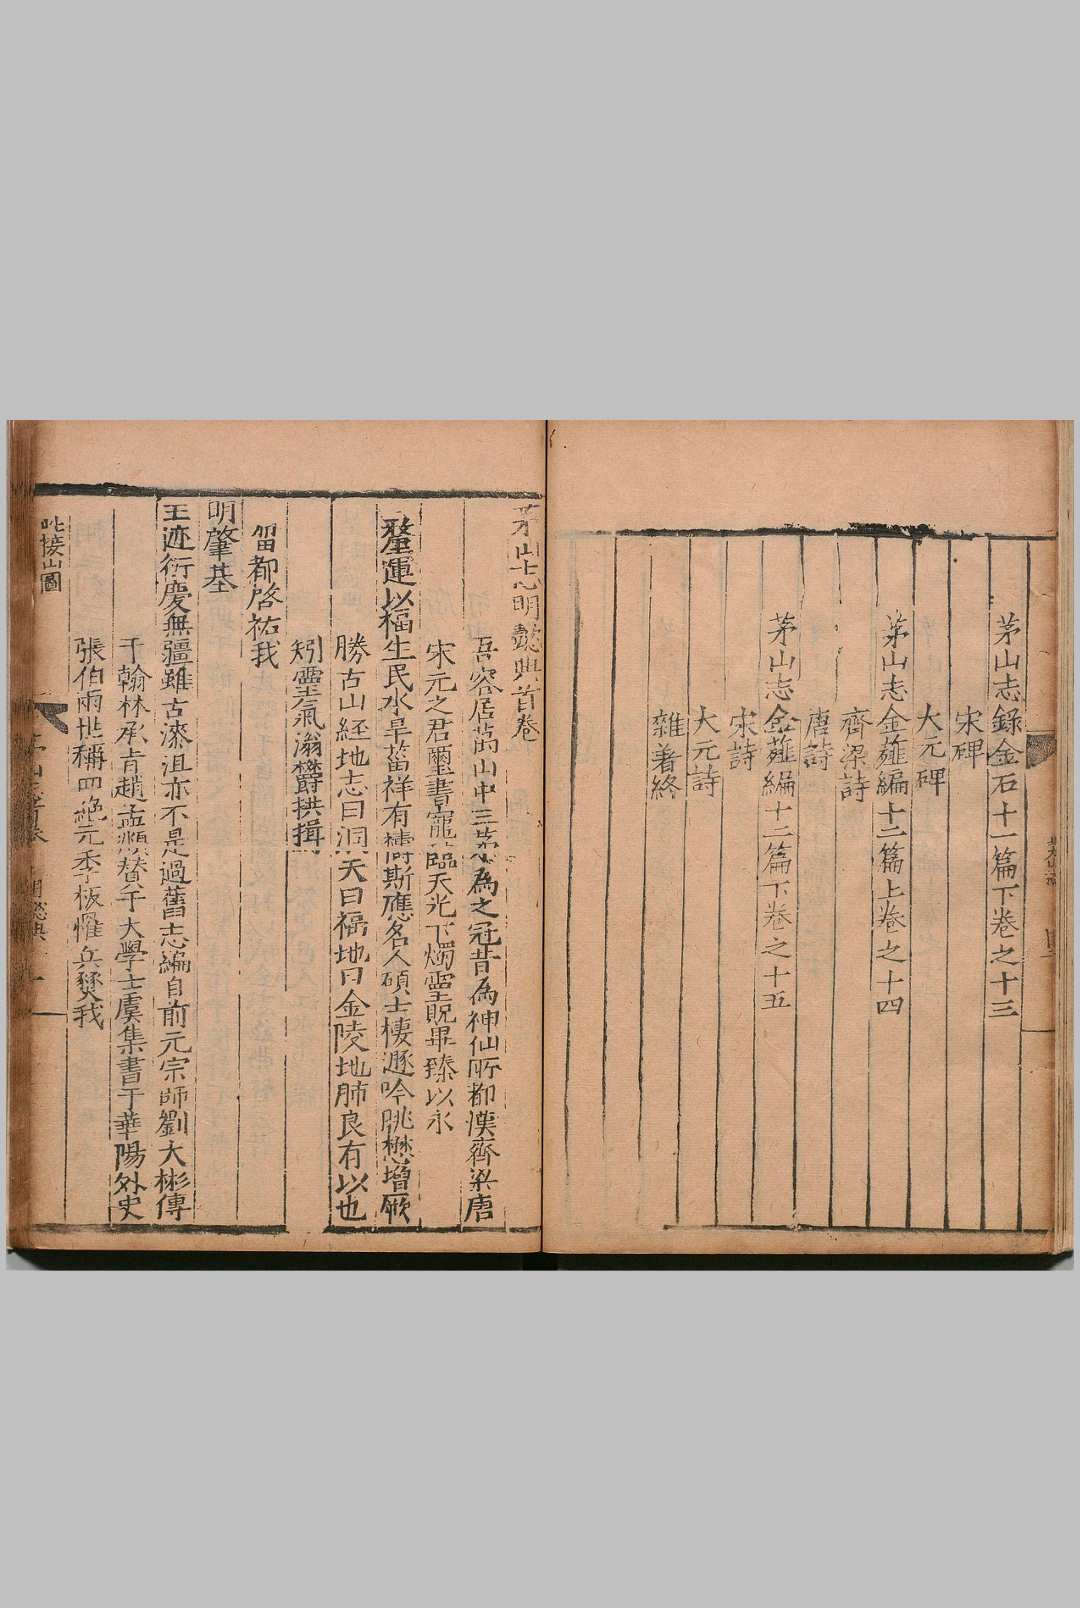 茅山志錄金石十一篇下卷之十三
宋碑
大元碑
茅山志金薤編十二篇上卷之十四
齊梁詩
唐詩
茅山志金薤編十二篇下卷之十五
宋詩
大元詩
雜著終
茅山志明懿典首卷
吾容居萬山中三茅為之冠昔為神仙所都漢齊梁唐
宋元之君璽書寵臨天光下燭靈貺畢臻以永
釐運以福生民水旱菑祥有禱斯應名人碩士棲遯吟眺懋增厥
勝古山經地志曰洞天曰福地曰金陵地肺良有以也
矧靈氣滃欝拱揖
留都啓祐我
明肇基
王迹衍慶無疆雖古漆沮亦不是過舊志編自前元宗師劉大彬傳
于翰林承旨趙孟頫替手大學士虞集書于華陽外史
張伯雨世稱四絶元季板懼兵燹我